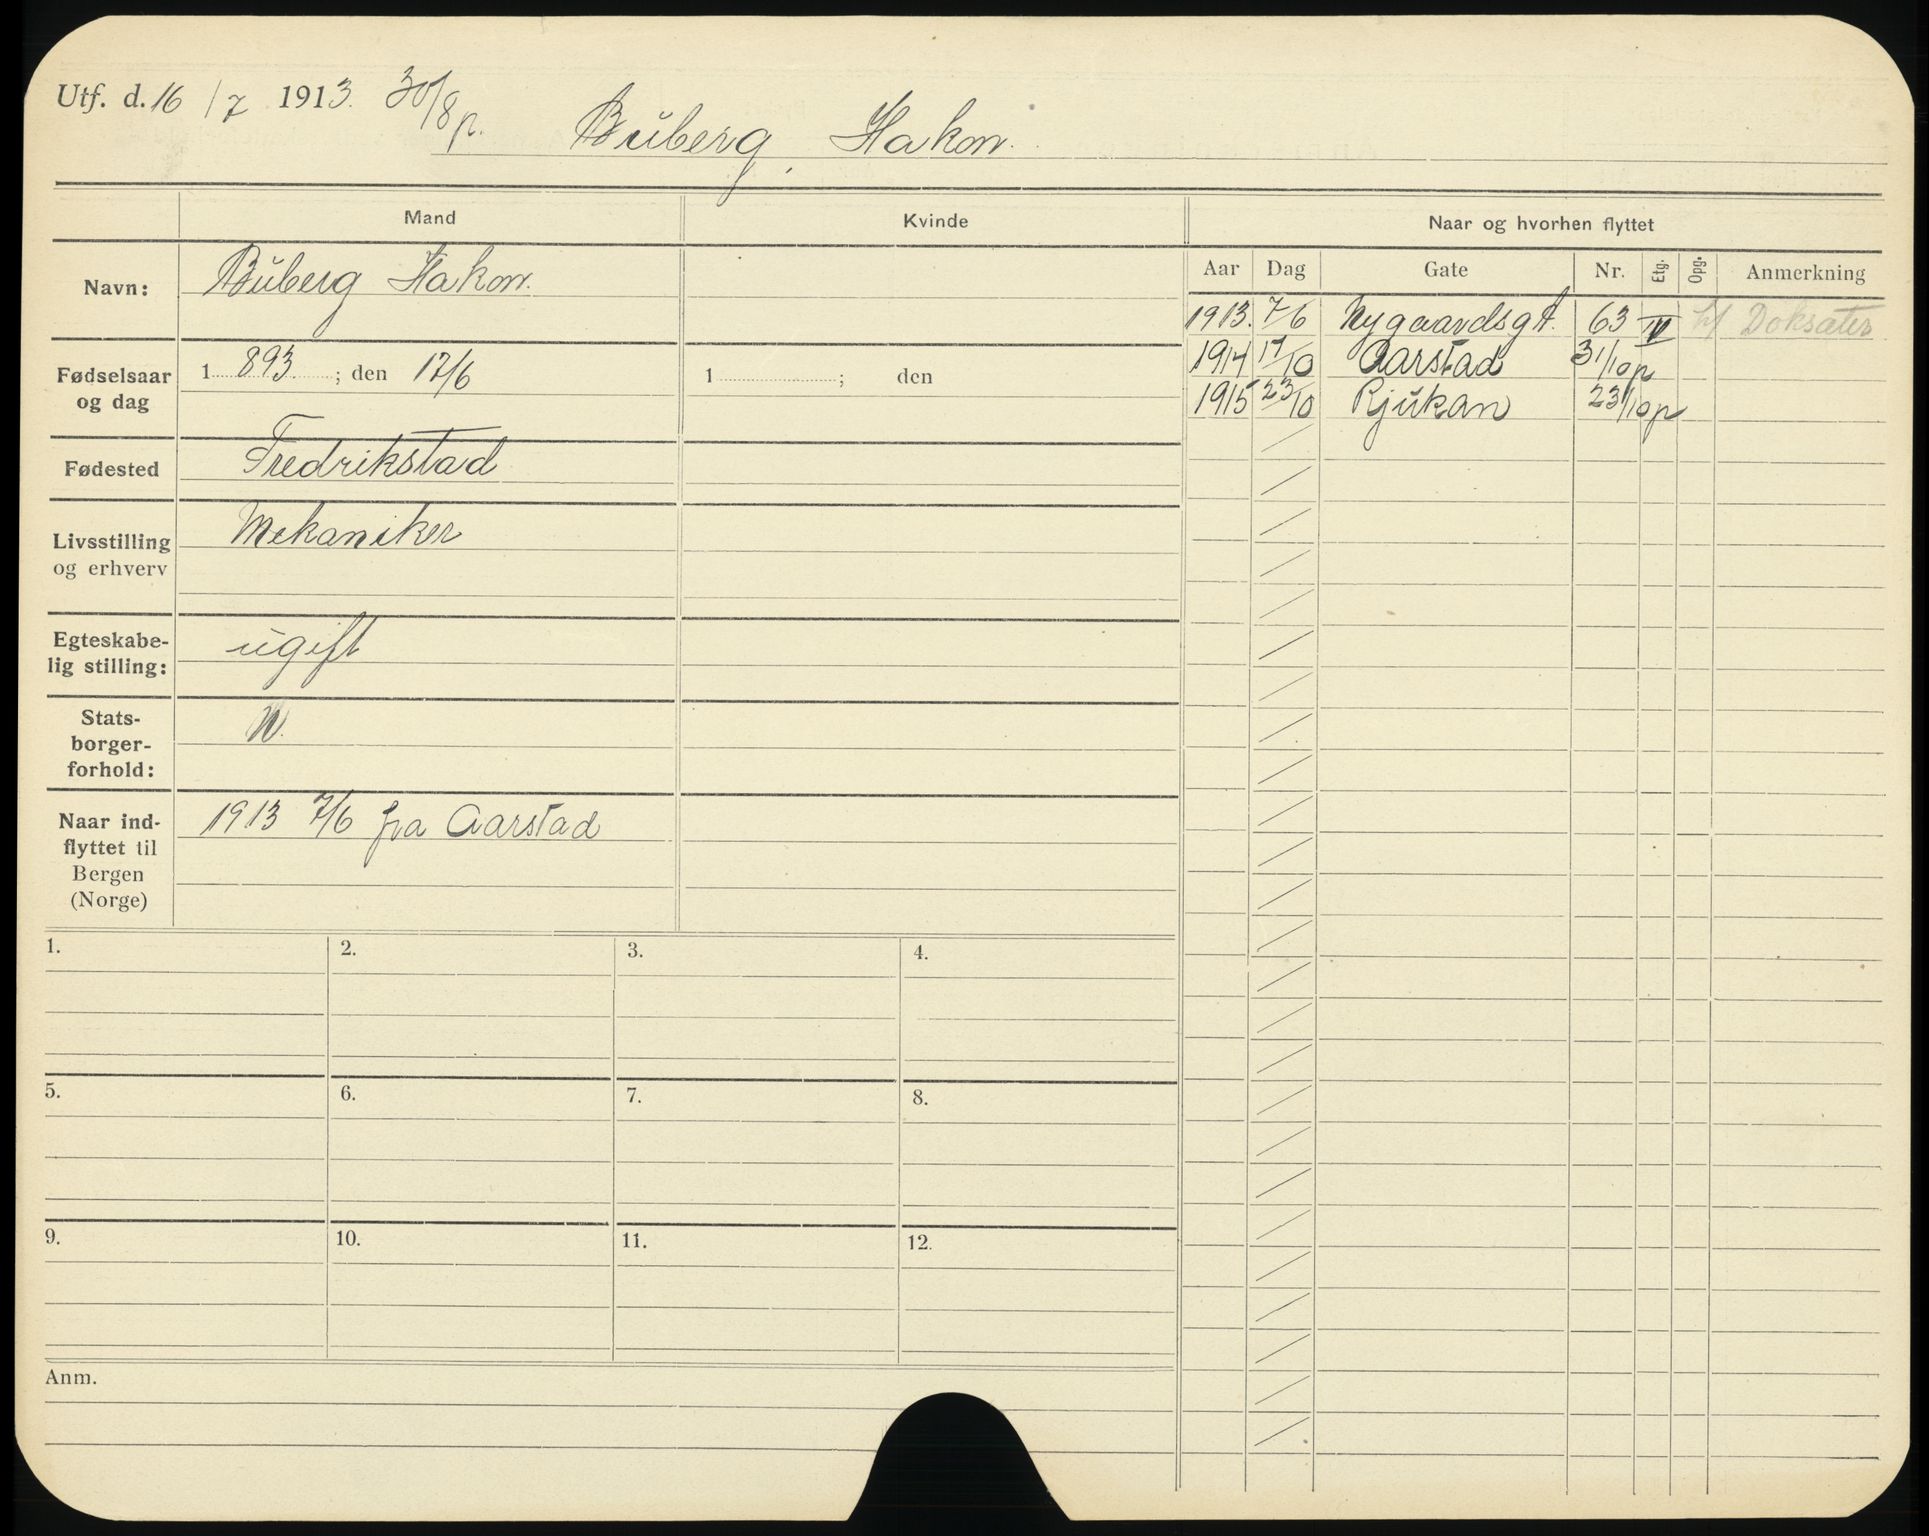 Utf. d. 16/7 1913. 30/8 p.
Buberg, Hakon.
Mand
Kvinde
Naar og hvorhen flyttet
Navn: Buberg Hakon.
Aar Dag Gate Nr. Etg. Opg. Anmerkning
1913. 7/6 Nygaardsgt. 63 IV h/ Doksæter
1914 17/10 Aarstad 31/10 p
1915 23/10 Rjukan 23/10 p
Fødselsaar og dag 1 893 ; den 17/6
1 ; den
Fødested Fredrikstad
Livsstilling og erhverv Mekaniker
Egteskabe-
lig stilling: ugift
Stats-
borger-
forhold: N.
Naar ind-
flyttet til
Bergen
(Norge) 1913 7/6 fra Aarstad
1. 2. 3. 4.
5. 6. 7. 8.
9. 10. 11. 12.
Anm.